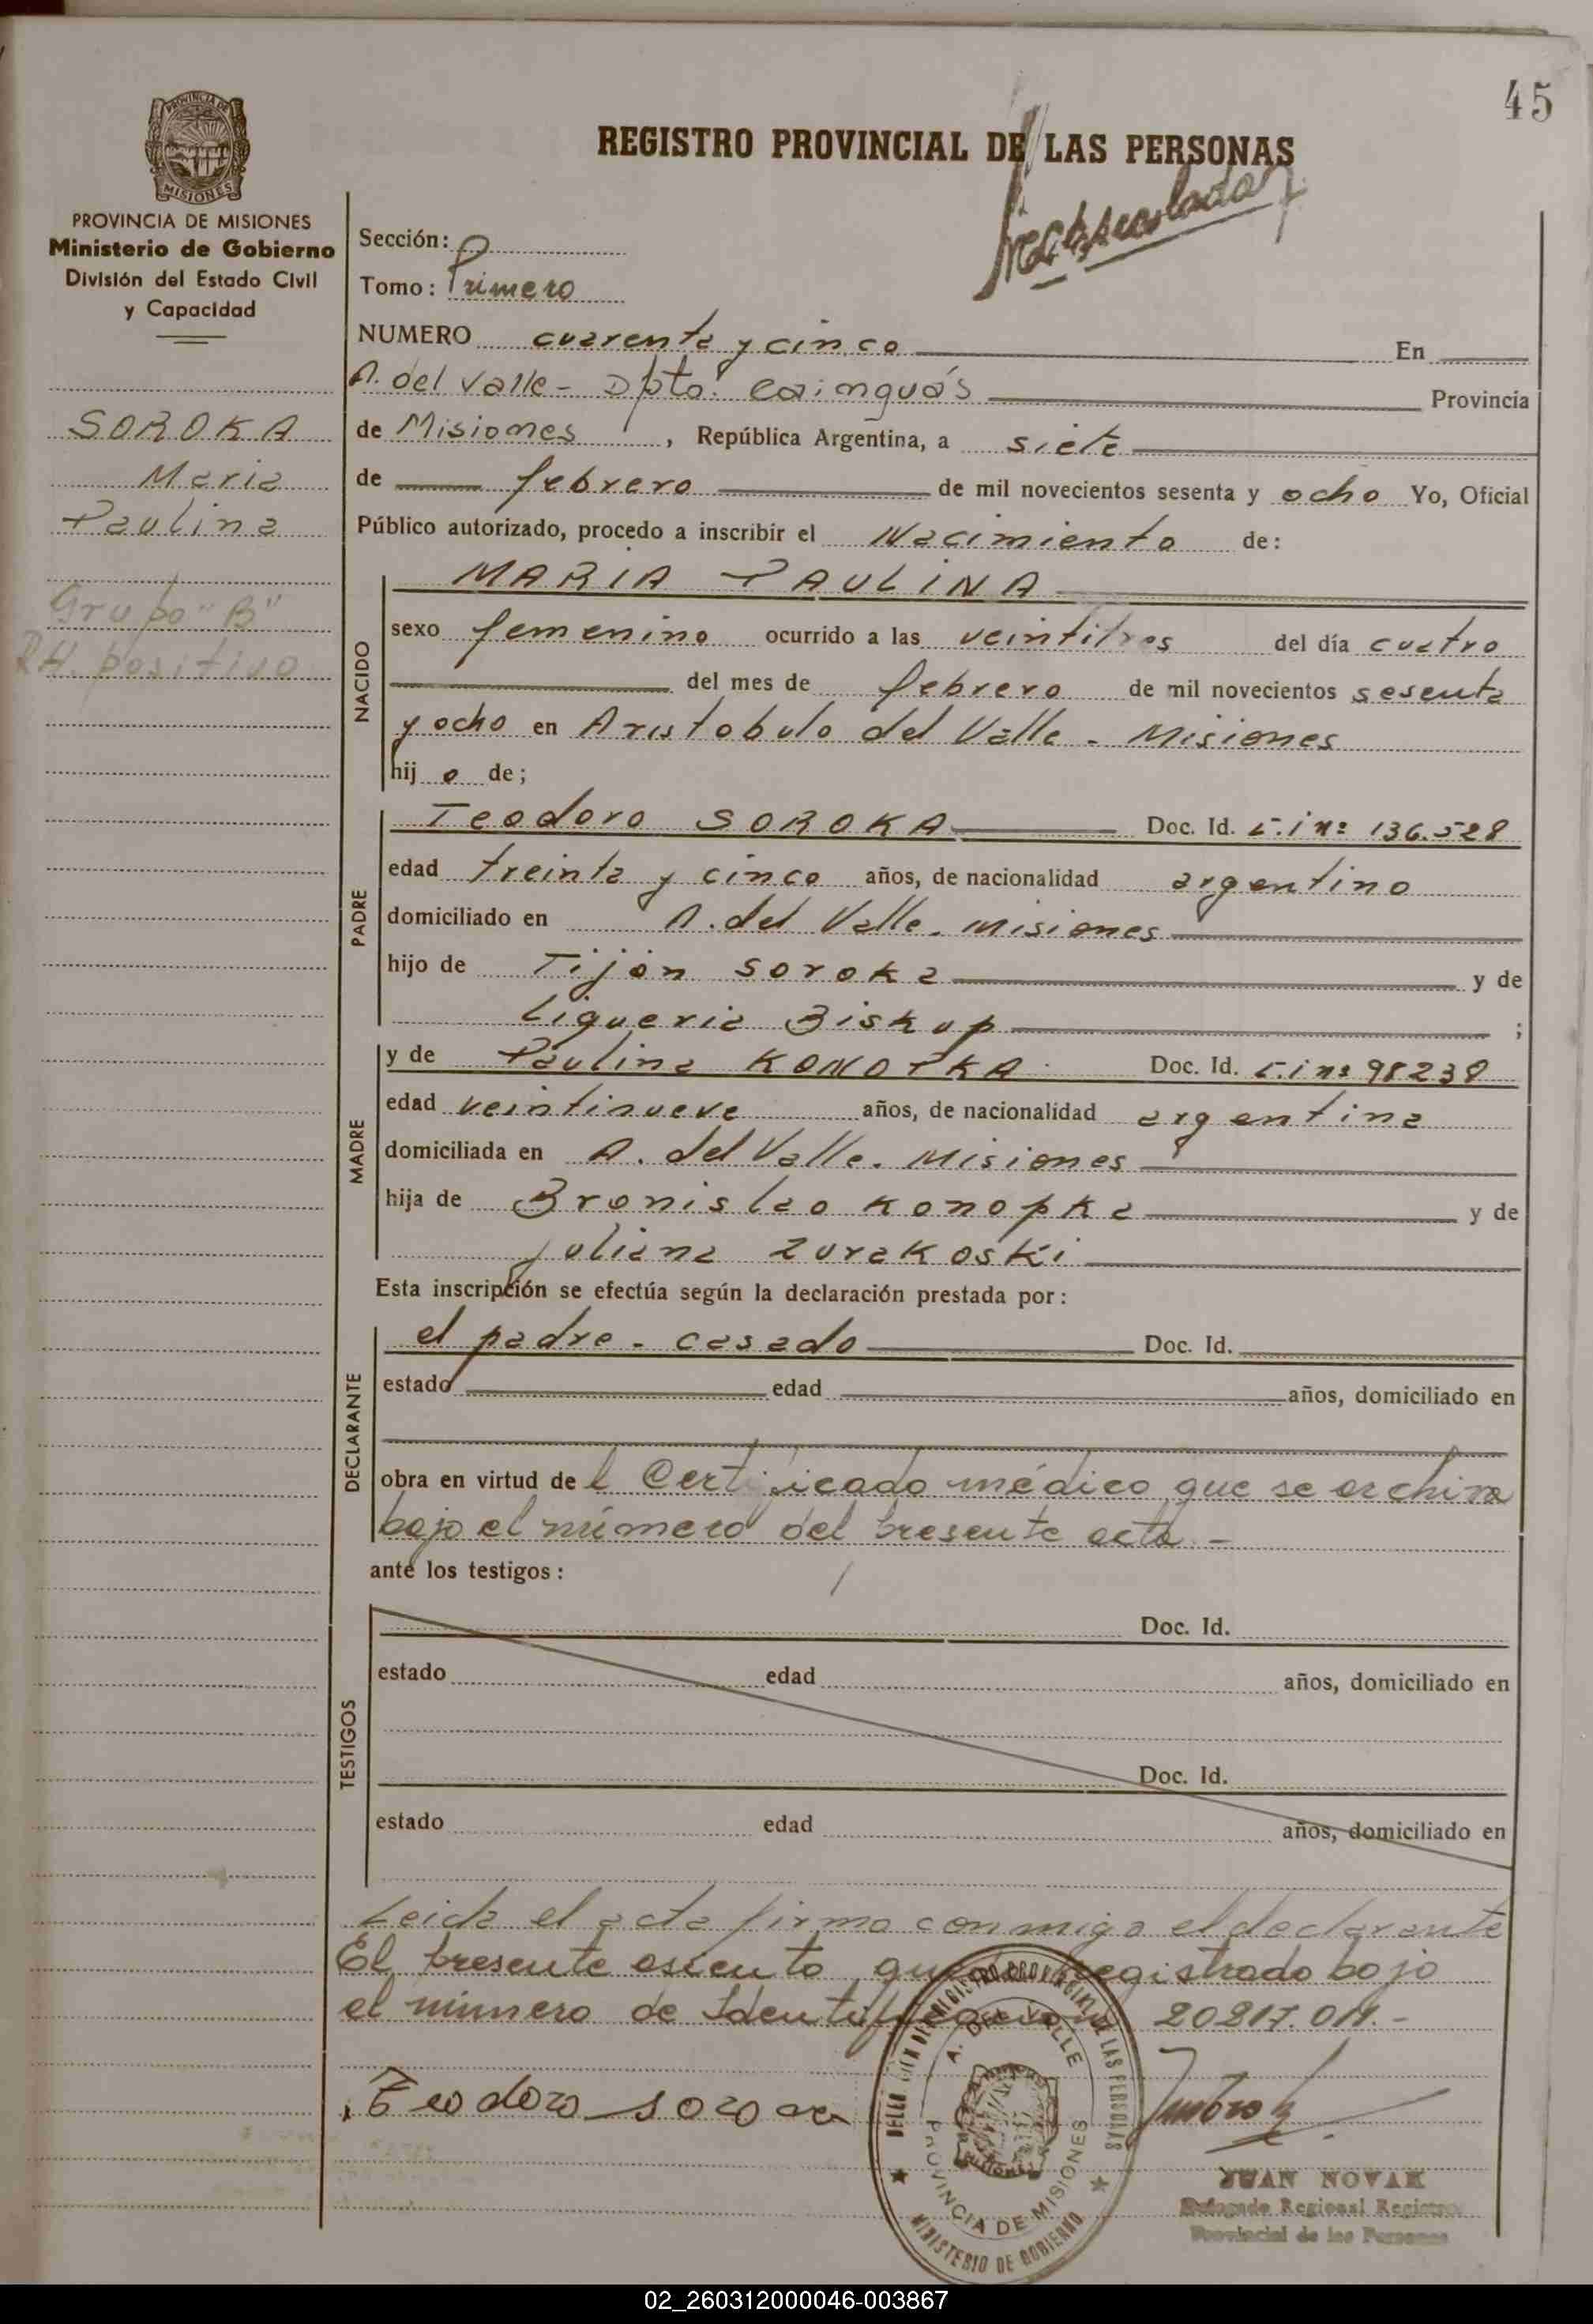 45
REGISTRO PROVINCIAL DE LAS PERSONAS
PROVINCIA DE MISIONES
Ministerio de Gobierno
División del Estado Civil
y Capacidad
SOROKA
Maria
Paulina
Grupo "B"
RH. positivo
Sección:
Tomo: Primero
NUMERO cuarenta y cinco En
A. del Valle - Dpto. Cainguás Provincia
de Misiones, República Argentina, a siete
de febrero de mil novecientos sesenta y ocho Yo, Oficial
Público autorizado, procedo a inscribir el Nacimiento de:
NACIDO
MARIA PAULINA
sexo femenino ocurrido a las veintitres del día cuatro
del mes de febrero de mil novecientos sesenta
y ocho en Aristobulo del Valle - Misiones
hij o de;
PADRE
Teodoro SOROKA Doc. Id. L.i nº 136.528
edad treinta y cinco años, de nacionalidad argentino
domiciliado en A. del Valle. Misiones
hijo de Tijon Soroka y de
Ligueria Biskup ;
MADRE
y de Paulina KONOPKA Doc. Id. c.i nº 98238
edad veintinueve años, de nacionalidad argentina
domiciliada en A. del Valle. Misiones
hija de Bronislao Konopka y de
Juliana Zurakoski
Esta inscripción se efectúa según la declaración prestada por:
DECLARANTE
el padre - casado Doc. Id.
estado edad años, domiciliado en
obra en virtud de l Certificado médico que se archiva
bajo el número del presente acta. -
ante los testigos:
TESTIGOS
Doc. Id.
estado edad años, domiciliado en
Doc. Id.
estado edad años, domiciliado en
Leida el acta firma conmigo el declarante
El presente asiento queda registrado bajo
el número de Identificación 20217.011.-
Teodoro soroka
A. DEL VALLE
PROVINCIA DE MISIONES
MINISTERIO DE GOBIERNO
JUAN NOVAK
Delegado Regional Registro
Provincial de las Personas
02_260312000046-003867